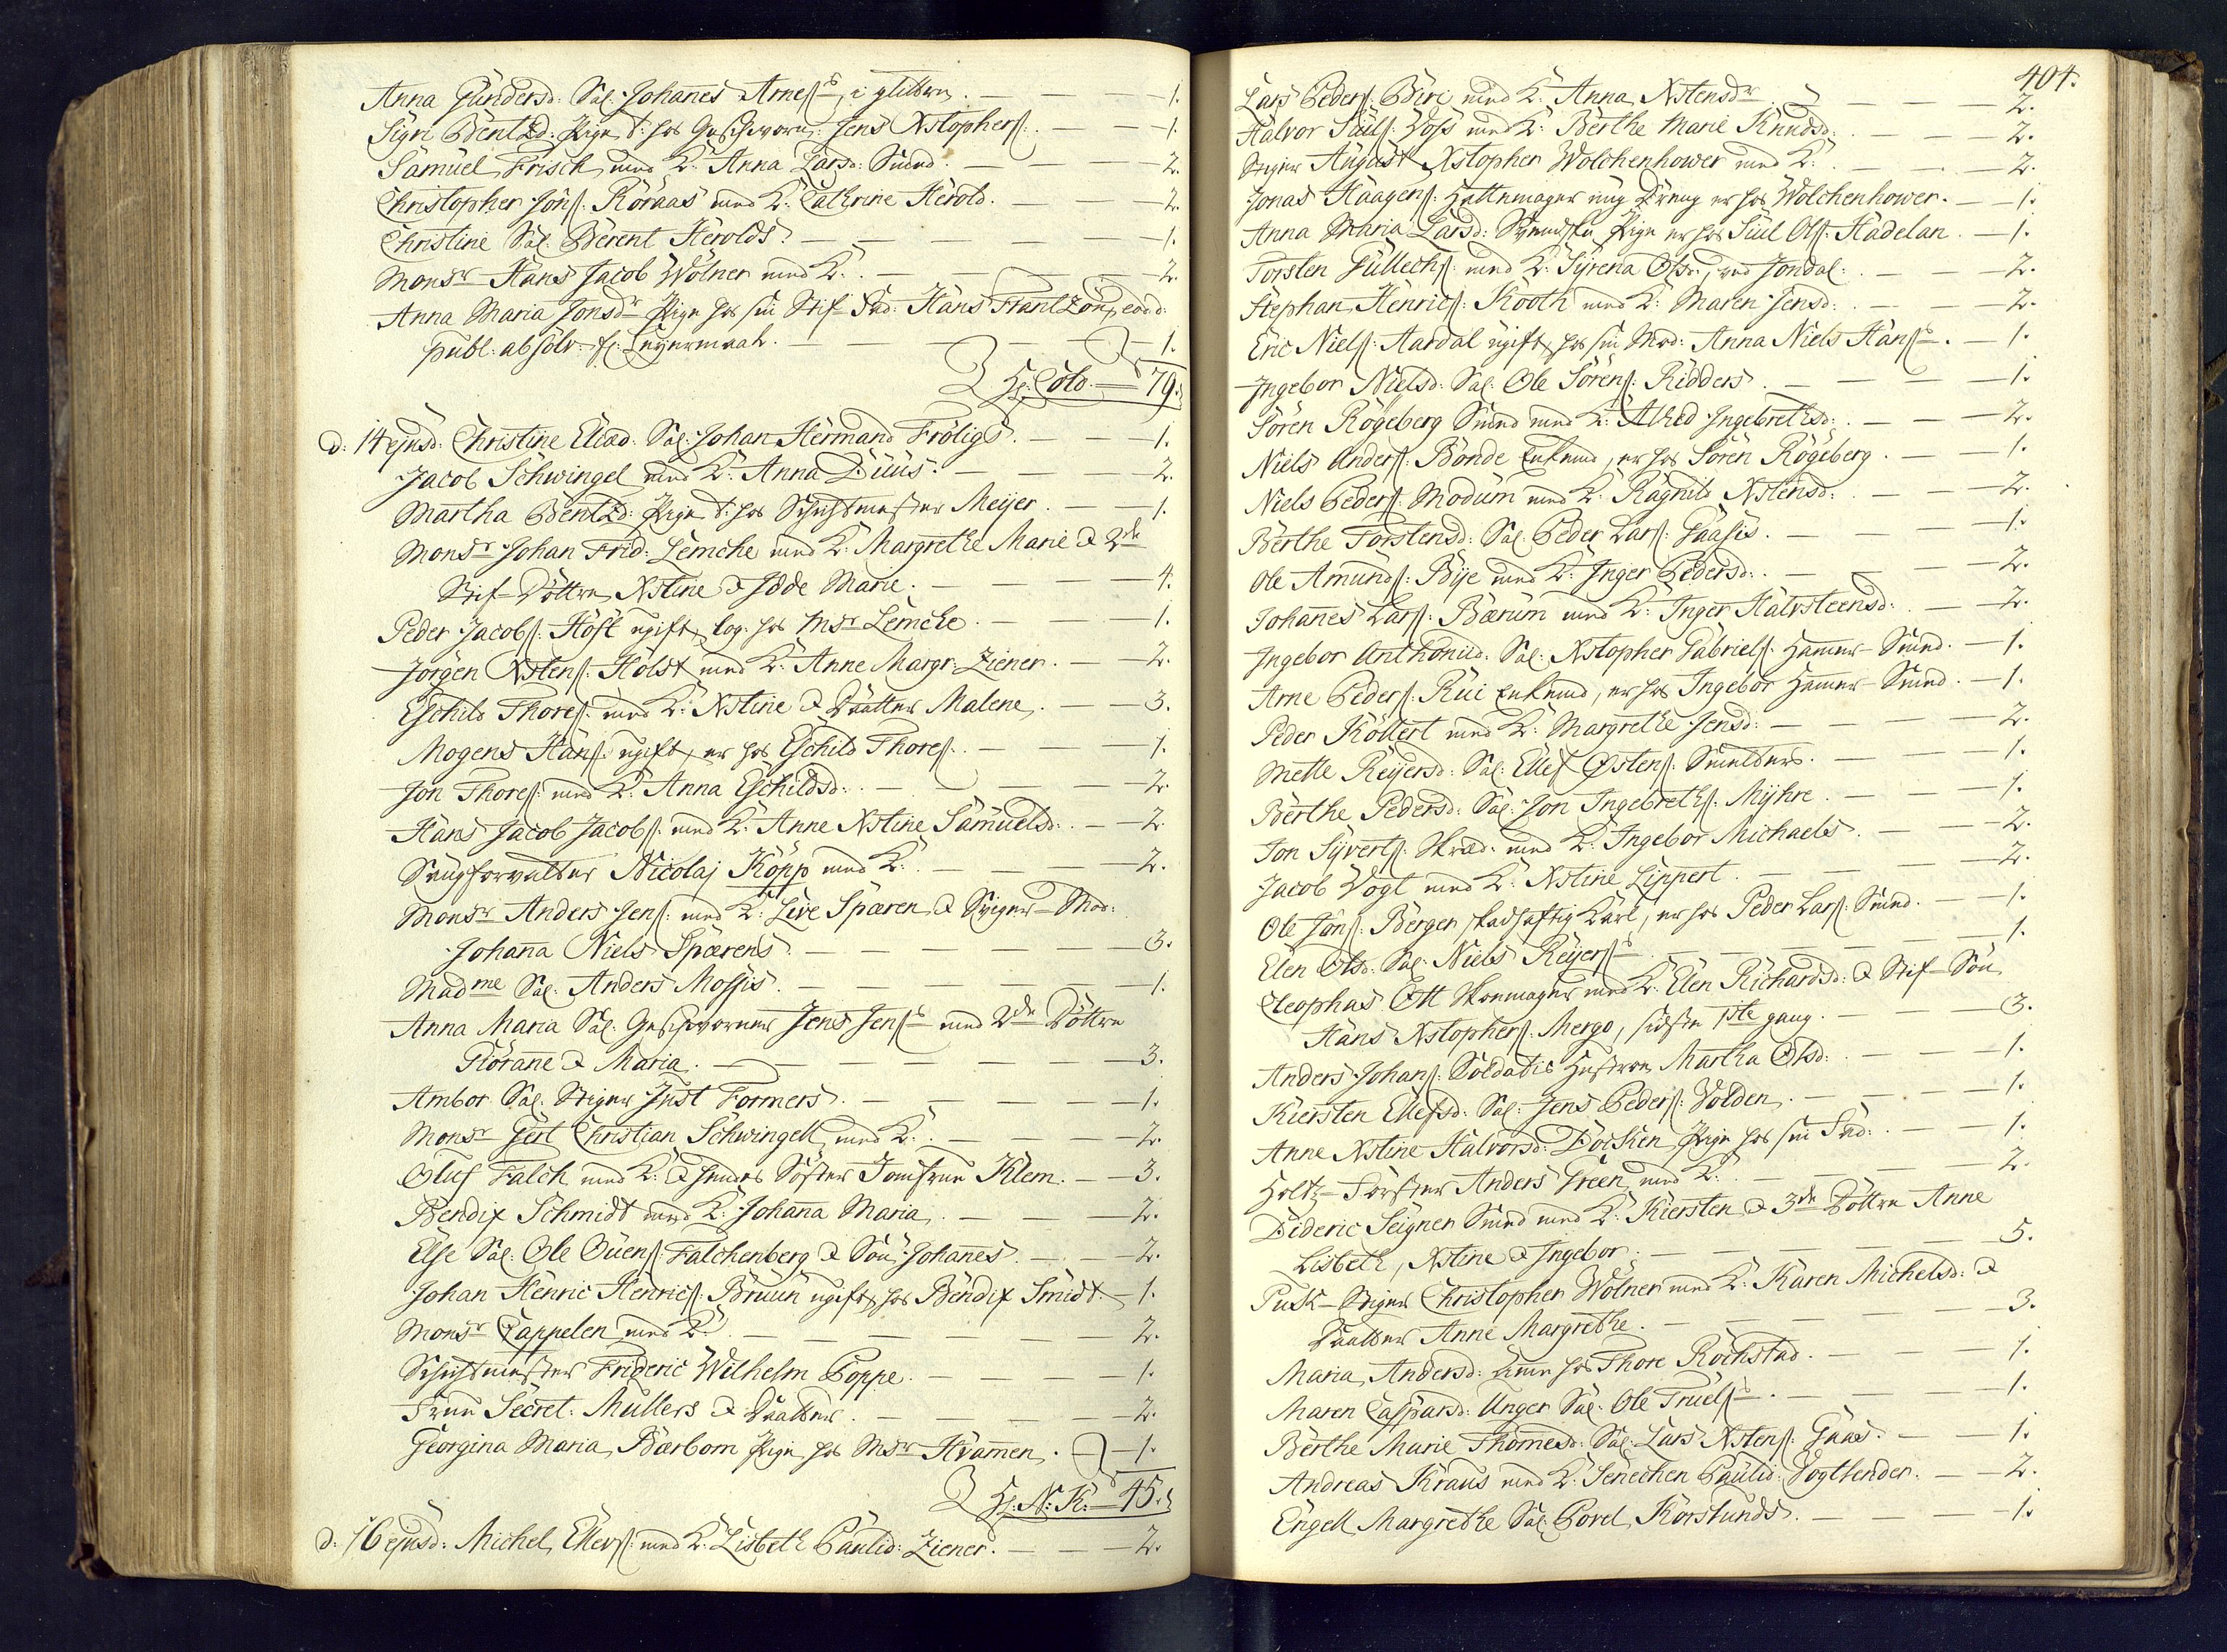 Anna Gundersd: Sal. Johanes Arnesß i gitteren. — — — 1.
Sigri Bentzd: Pige t: hos Geschworn: Jens Xstophers: — — 1.
Samuel Frisch med K: Anna Larsd: Smed. — — — 2.
Christopher Jons: Röraas med K: Cathrine Herold. — — 2.
Christine Sal. Berent Herolds. — — — — 1.
Monsr Hans Jacob Wölner med K: — — — 2.
Anna Maria Jonsdr Pige hos sin Stif-Fad: Hans Frantzön, eod. d:
publ. absolv. f: Leyermaal. — — — — 1.
Hr. Colo. — 79.
d: 14 ejusd: Christine Eliæd. Sal: Johan Hermand Frölig. — — 1.
Jacob Schwingel med K: Anna Duus. — — 2.
Martha Bentzd: Pige t: hos Schichtmester Meyer. — — 1.
Monsr Johan Frid: Lemche med K: Margrethe Marie & 2de
Stif-Döttre Xstine & Idde Marie. — — — 4.
Peder Jacobs: Höst ugift, log. hos Msr Lemche. — — 1.
Jörgen Xstens: Holst med K: Anne Margr: Ziener. — — 2.
Eschild Thores: med K: Xstine & Daatter Malene. — — 3.
Mogens Hans: ugift, er hos Eschild Thores: — — 1.
Jon Thores: med K: Anna Eschildsd: — — 2.
Hans Jacob Jacobs: med K: Anne Xstine Samuelsd: — 2.
Saugforvalter Nicolaj Köpp med K: — — 2.
Monsr Anders Jens: med K: Live Spæren & Sviger-Mod:
Johana Niels Spærens. — — — — 3.
Madme Sal. Anders Mossis. — — — — 1.
Anna Maria Sal. Geschworner Jens Jensß med 2de Döttre
Florane & Maria. — — — — 3.
Ambor Sal. Stiger Just Formers. — — — 1.
Monsr Gert Christian Schwingell med K: — — — 2.
Oluf Falch med K: & hendes Söster Jomfrue Klem. — 3.
Bendix Schmidt med K: Johana Maria. — — 2.
Else Sal. Ole Ouens: Falchenberg & Sön Johanes. — — 2.
Johan Henric Henrics: Bruun ugift, hos Bendix Smidt. — 1.
Monsr Cappelen med K: — — — — 2.
Schichtmester Frideric Wilhelm Poppe. — — — 1.
Frue Secret: Müllers & Daatter. — — — 2.
Georgina Maria Bærbom Pige hos Msr Hramen. — 1.
Hr. N: K: — 45.
d: 16 ejusd: Michel Ellevs: med K: Lisbeth Paulid: Ziener. — — 2.
404.
Lars Peders: Biri med K: Anna Xstensdr — — — 2.
Halvor Juuls: Voss med K: Berthe Marie Knudsd: — — 2.
Stiger August Xstopher Wolchenhower med K: — — 2.
Jonas Haagens: Hattemager ung Dreng er hos Wolchenhower. — 1.
Anna Maria Larsd: Svendsk Pige er hos Juul Ols: Hadelan. — 1.
Torsten Gullechs: med K: Syrena Olsd:, ved Jondal. — — 2.
Stephan Henrics: Kooth med K: Maren Jensd: — — 2.
Eric Niels: Aardal ugift, hos sin Mod: Anna Niels Hansß. — 1.
Ingebor Nielsd: Sal: Ole Sörens: Ridders. — — — 1.
Sören Rögeberg Smed med K: Alhed Ingebrethsd: — — 2.
Niels Anders: Bonde Enkemd, er hos Sören Rögeberg. — 1.
Niels Peders: Modum med K: Ragnild Xstensd: — — 2.
Berthe Torstensd: Sal. Peder Lars: Gaasis. — — 1.
Ole Amunds: Bije med K: Inger Pedersd: — — 2.
Johanes Lars: Bærum med K: Inger Halvsteensd: — — 2.
Ingebor Anthonid. Sal: Xstopher Gabriels: Hamer-Smed. — 1.
Arne Peders: Rui Enkemd, er hos Ingebor Hamer-Smed. — 1.
Peder Köllert med K: Margrethe Jensd: — — — 2.
Mette Reijersd: Sal: Ellef Östens: Smelters. — — 1.
Berthe Pedersd: Sal: Jon Ingebreths: Mÿhre. — — 1.
Jon Syverts: Skræd: med K: Ingebor Michaels. — — 2.
Jacob Vogt med K: Xstine Lippert. — — — 2.
Ole Jons: Berger skadhaftig Karl, er hos Peder Lars: Smed. — 1.
Elen Olsd: Sal: Niels Reijersß — — — — 1.
Cleophas Ott Skomager med K: Elen Richardsd: & Stif-Sön
Hans Xstophers: Mergo, sidste 1ste gang. — — — 3.
Anders Johans: Soldatis Hustroe Martha Olsd: — — 1.
Kiersten Ellefsd: Sal: Jens Peders: Volden. — — — 1.
Anne Xstine Halvorsd: Döcken Pige hos sin Fad: — — 1.
Holtz-Förster Anders Green med K: — — — 2.
Dideric Seigner Smed med K: Kiersten & 3de Döttre Anne
Lisbeth, Xstine & Ingebor. — — — — 5.
Puk-Stiger Christopher Wölner med K: Karen Michelsd: &
Daatter Anne Margrethe. — — — — 3.
Maria Andersd: Ame hos Thore Rochstad. — — 1.
Maren Caspersd: Unger Sal: Ole Truelsß. — — 1.
Berthe Marie Thomesd: Sal: Lars Xstens: Gaas. — — 1.
Andreas Kraus med K: Lenechen Paulid: Vogtlender. — 2.
Engell Margrethe Sal. Povel Korslunds. — — — 1.